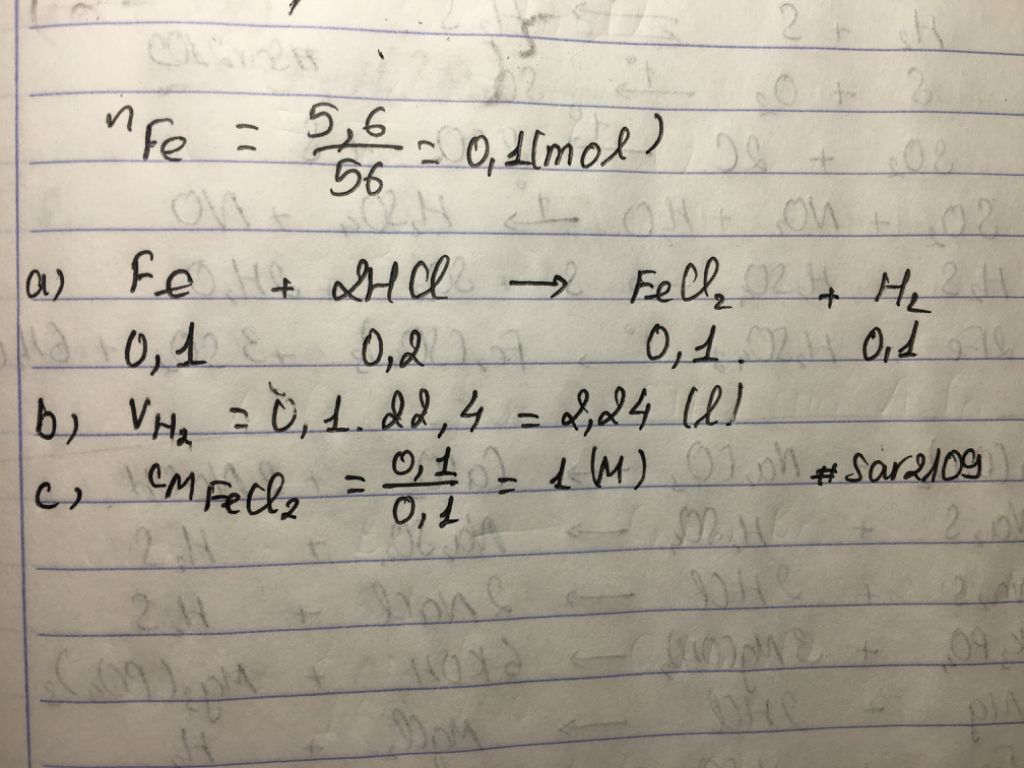 nFe = 5,6/56 = 0,1(mol)
a) Fe + 2HCl → FeCl2 + H2
0,1 0,2 0,1. 0,1
b) VH2 = 0,1.22,4 = 2,24 (l)
c) CM FeCl2 = 0,1/0,1 = 1 (M) #Sar2109